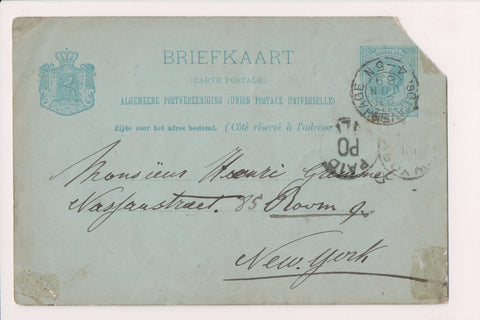 BRIEFKAART
(CARTE POSTALE)
ALGEMEENE POSTVEREENIGING (UNION POSTALE UNIVERSELLE)
Zijde voor het adres bestemd. (Côté réservé à l'adresse.)
PAID
Monsieur Henri
Nassaustraat. 85 Room
New. York